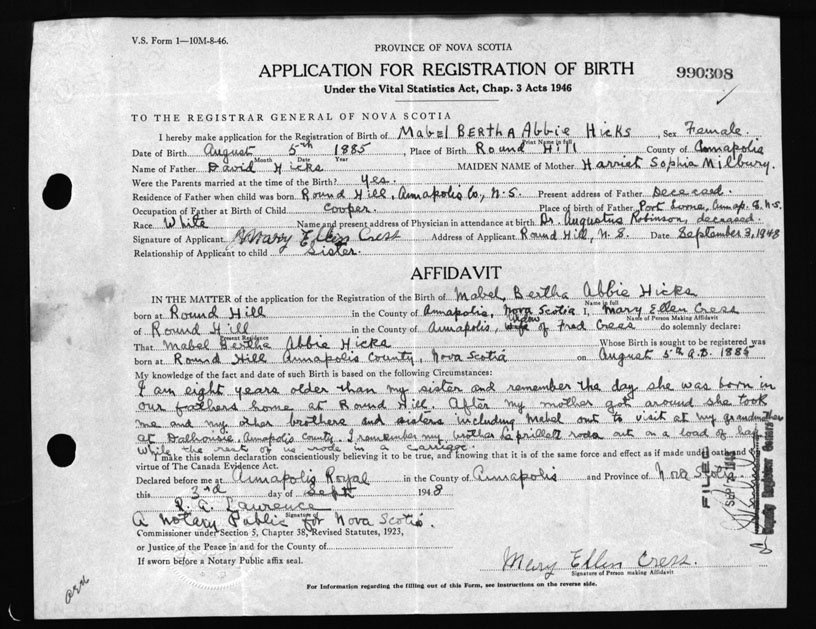 V.S. Form 1—10M-8-46.
PROVINCE OF NOVA SCOTIA
APPLICATION FOR REGISTRATION OF BIRTH
990308
Under the Vital Statistics Act, Chap. 3 Acts 1946
TO THE REGISTRAR GENERAL OF NOVA SCOTIA
I hereby make application for the Registration of Birth of Mabel Bertha Abbie Hicks, Sex Female.
Print Name in full
Date of Birth August 5th 1885, Place of Birth Round Hill County of Annapolis
Month Date Year
Name of Father David Hicks MAIDEN NAME of Mother Harriet Sophia Milbury.
Were the Parents married at the time of the Birth? Yes.
Residence of Father when child was born Round Hill, Annapolis Co., N.S. Present address of Father Deceased.
Occupation of Father at Birth of Child Cooper. Place of birth of Father Port Lorne, Annap. Co. N.S.
Race White Name and present address of Physician in attendance at birth Dr. Augustus Robinson, deceased.
Signature of Applicant Mary Ellen Cress Address of Applicant Round Hill, N.S. Date September 3, 1948
Relationship of Applicant to child Sister.
AFFIDAVIT
IN THE MATTER of the application for the Registration of the Birth of Mabel Bertha Abbie Hicks
Name in full
born at Round Hill in the County of Annapolis, Nova Scotia I, Mary Ellen Cress
Name of Person Making Affidavit
of Round Hill in the County of Annapolis, widow wife of Fred Cress do solemnly declare:
Present Residence
That Mabel Bertha Abbie Hicks Whose Birth is sought to be registered was
born at Round Hill Annapolis County, Nova Scotia on August 5th A.D. 1885
My knowledge of the fact and date of such Birth is based on the following Circumstances:
I am eight years older than my sister and remember the day she was born in
our fathers home at Round Hill. After my mother got around she took
me and my other brothers and sisters including Mabel out to visit at my grandmother
at Dalhousie, Annapolis County. I remember my brother rode out on a load of hay
while the rest of us rode in a carriage.
I make this solemn declaration conscientiously believing it to be true, and knowing that it is of the same force and effect as if made under oath and
virtue of The Canada Evidence Act.
Declared before me at Annapolis Royal in the County of Annapolis and Province of Nova Scotia
this 3rd day of Sept 1948
Signature of
A Notary Public for Nova Scotia.
Commissioner under Section 5, Chapter 38, Revised Statutes, 1923,
or Justice of the Peace in and for the County of
If sworn before a Notary Public affix seal.
Mary Ellen Cress.
Signature of Person making Affidavit
For Information regarding the filling out of this Form, see instructions on the reverse side.
FILED
Deputy Registrar General